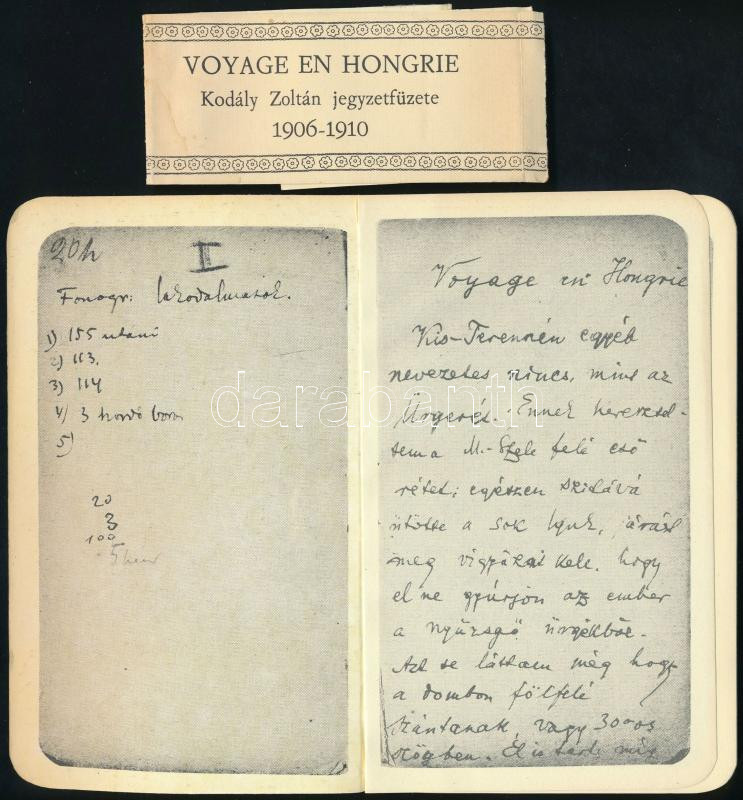 VOYAGE EN HONGRIE
Kodály Zoltán jegyzetfüzete
1906-1910
20h
I
Fonogr: lakodalmasok.
1) 155 utáni
2) 113.
3) 114
4) 3 hordó bor
5)
20
3
100
Voyage en Hongrie
Kis-Terennén egyéb
nevezetes nincs, mint az
Ürgeré. Ennek
a M.-Szele felé eső
rétet; egészen szitává
ütötte a sok lyuk,
meg vigyázni kell, hogy
el ne gyúrjon az ember
a nyüzsgő ürgékből.
Azt se láttam még hogy
a dombon fölfelé
szántanak, vagy 30°-os
szögben. El is tart míg
darabanth